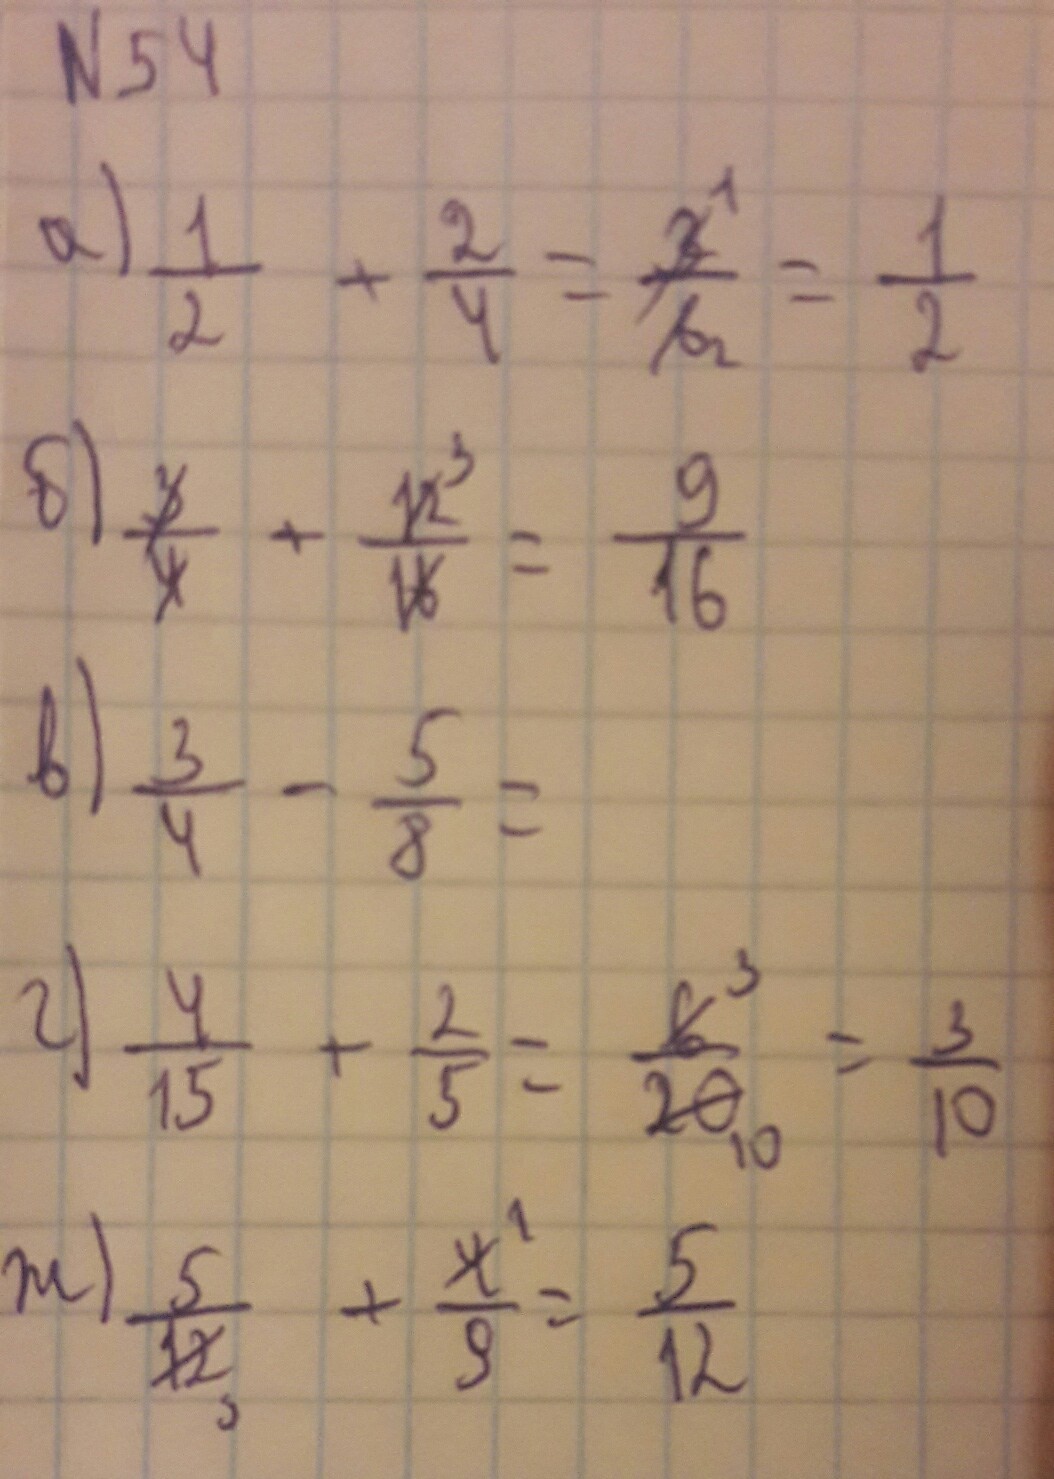 N54
а) 1/2 + 2/4 = 3¹/6₂ = 1/2
б) 3/4 + 12³/16 = 9/16
в) 3/4 - 5/8 =
г) 4/15 + 2/5 = 6³/20₁₀ = 3/10
ж) 5/12₃ + 4¹/9 = 5/12